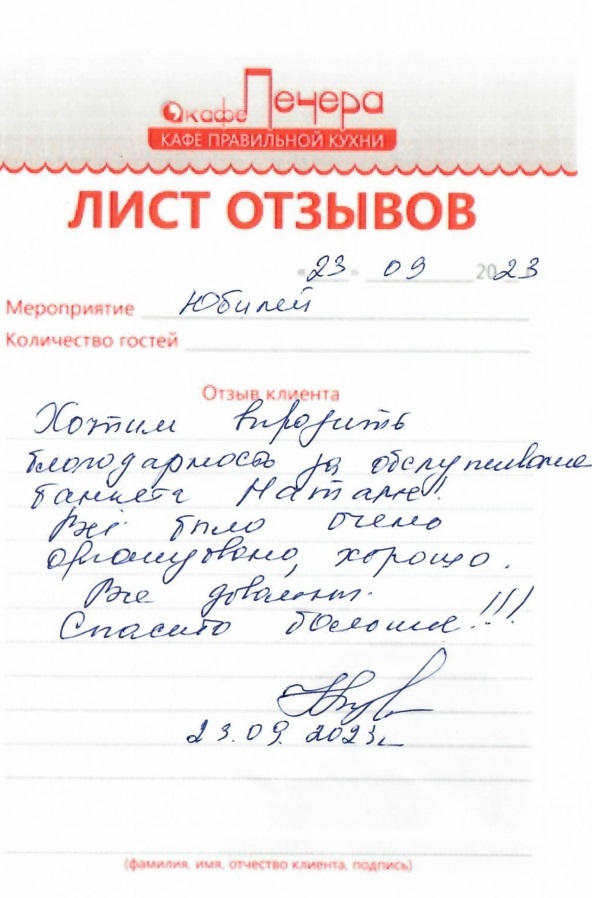 кафе Печера
КАФЕ ПРАВИЛЬНОЙ КУХНИ
ЛИСТ ОТЗЫВОВ
«23» 09 2023
Мероприятие Юбилей
Количество гостей
Отзыв клиента
Хотим выразить
благодарность за обслуживание
банкета Наталье!
Всё было очень
организовано, хорошо.
Все довольны.
Спасибо большое!!!
23.09.2023г.
(фамилия, имя, отчество клиента, подпись)